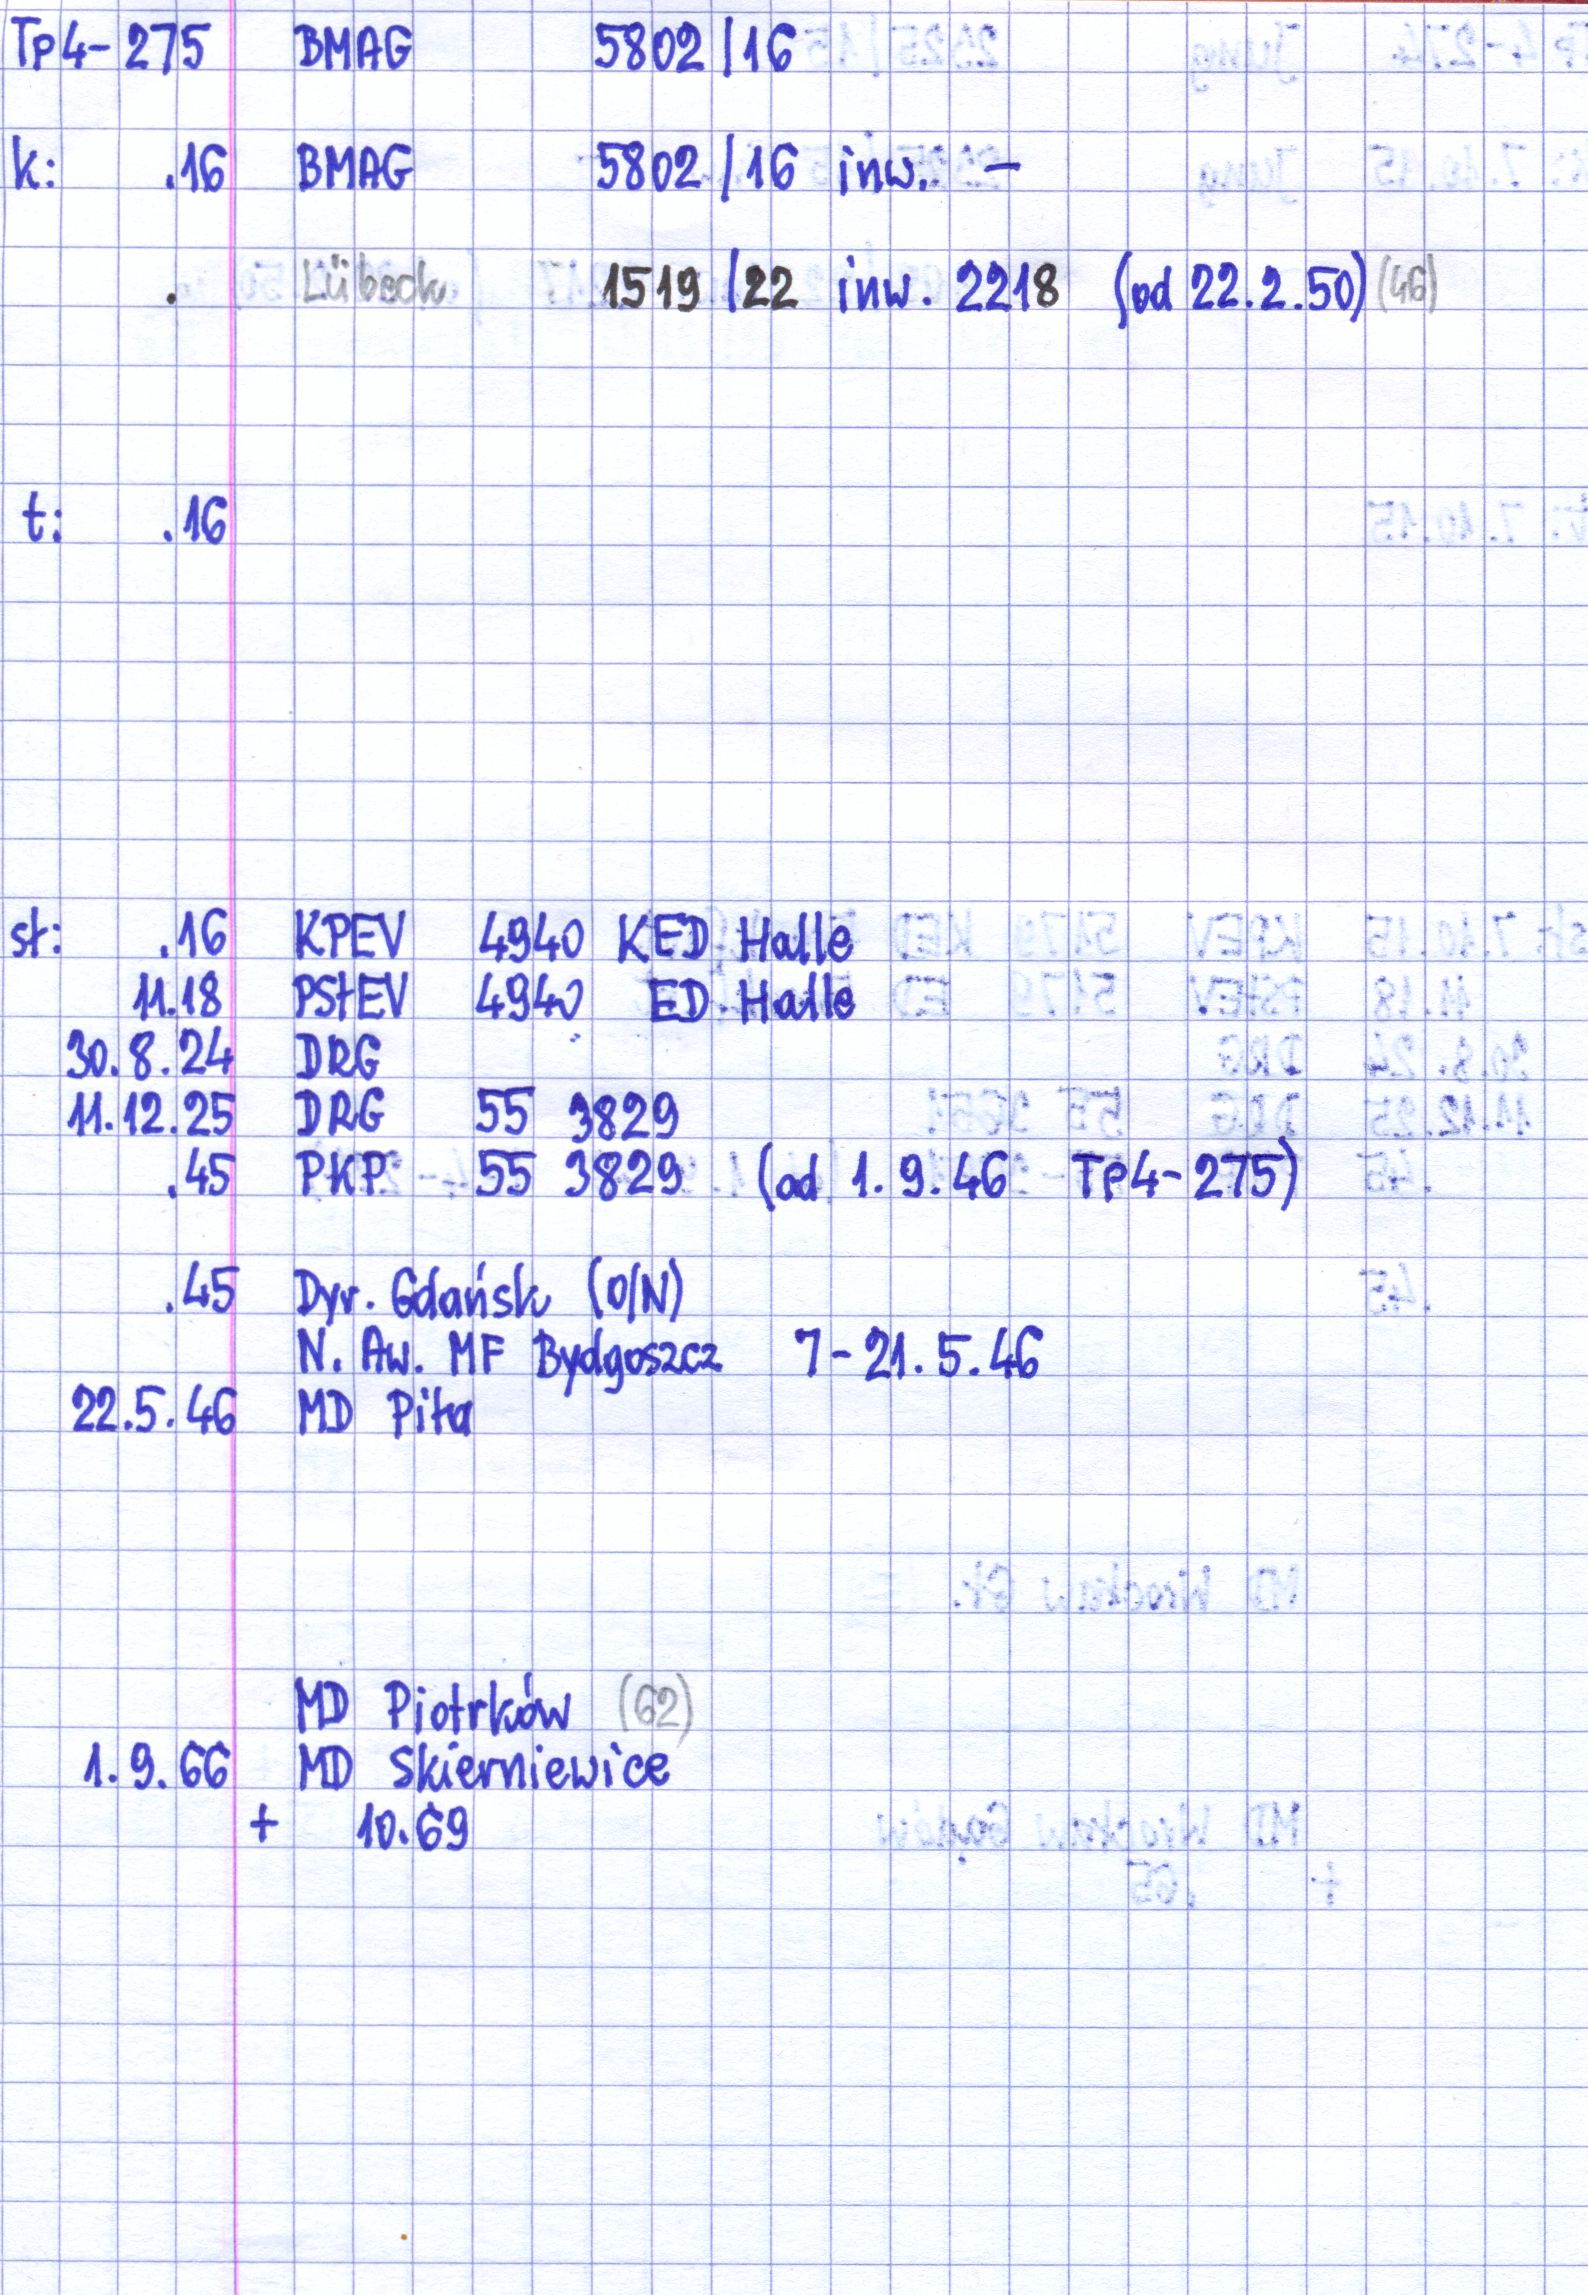 Tp4-275 BMAG 5802/16
k: .16 BMAG 5802/16 inw. -
. Lübeck 1519/22 inw. 2218 (od 22.2.50) (46)
t: .16
st: .16 KPEV 4940 KED Halle
11.18 PStEV 4940 ED Halle
30.8.24 DRG
11.12.25 DRG 55 3829
.45 PKP 55 3829 (od 1.9.46 Tp4-275)
.45 Dyr. Gdańsk (O/N)
N. Aw. MF Bydgoszcz 7-21.5.46
22.5.46 MD Piła
MD Piotrków (62)
1.9.66 MD Skierniewice
+ 10.69